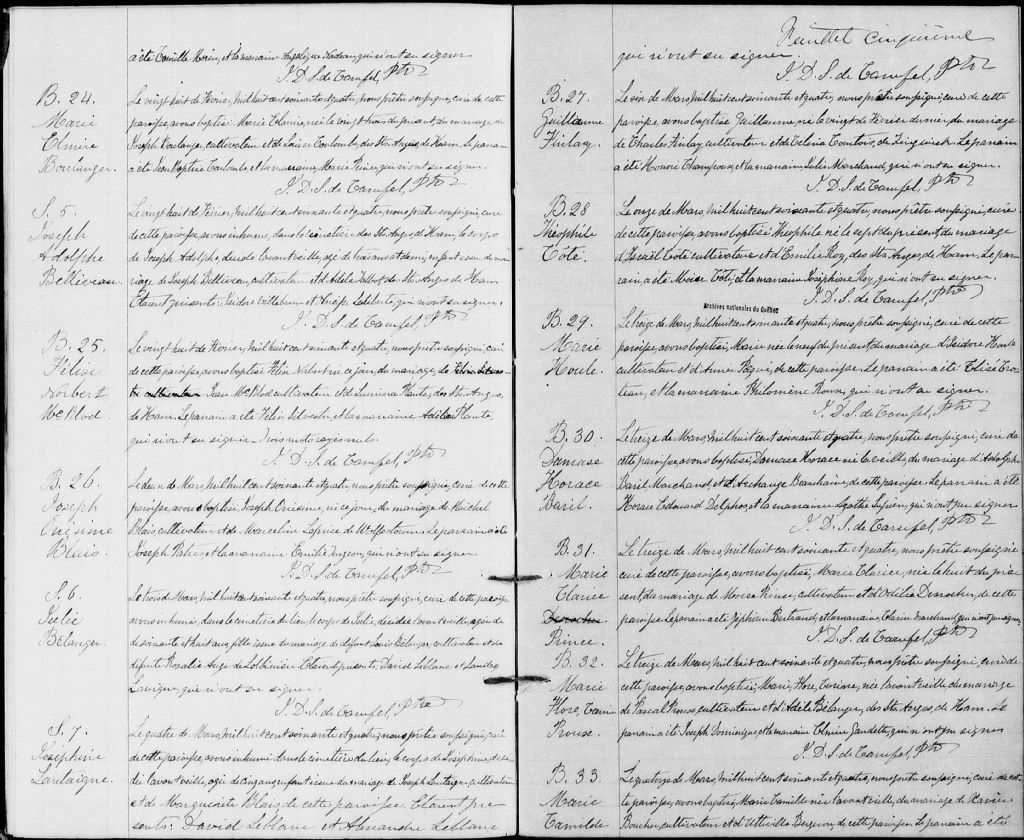 a été Camille Morin, et la marraine Angélique Nadeau qui n'ont su signer
J. D. S. de Tampel, Ptre
B. 24.
Marie
Elmire
Boulanger.
Le vingt huit de Février, mil huit cent soixante et quatre, nous prêtre soussigné, curé de cette
paroisse, avons baptisé Marie Elmire, née le vingt trois du présent, du mariage de
Joseph Boulanger, cultivateur et de Louise Coulombe, des Sts. Anges de Ham. Le parrain
a été Jean Baptiste Coulombe et la marraine, Marie qui n'ont su signer.
J. D. S. de Tampel, Ptre
S. 5.
Joseph
Adolphe
Belliveau.
Le vingt huit de Février, mil huit cent soixante et quatre, nous prêtre soussigné, curé
de cette paroisse, avons inhumé, dans le cimetière des Sts. Anges, d'Ham, le corps
de Joseph Adolphe, décédé l'avant veille, agé de trois ans et demi, enfant issu du ma-
riage de Joseph Belliveau, cultivateur et d'Adèle Talbot, des Sts. Anges de Ham
Etaient présents: Isidore et Laliberté, qui n'ont su signer.
J. D. S. de Tampel, Ptre
B. 25.
Félix
Norbert
McKlod.
Le vingt huit de Février, mil huit cent soixante et quatre, nous prêtre soussigné, curé
de cette paroisse, avons baptisé Félix Norbert né ce jour, du mariage de
cultivateur Jean McKlod cultivateur et de Lumina Plante, des Sts. Anges
de Ham. Le parrain a été Félix Silvestre, et la marraine Adélia Plante,
qui n'ont su signer. Trois mots rayés nuls.
J. D. S. de Tampel, Ptre
B. 26.
Joseph
Onésime
Blais.
Le deux de Mars, mil huit cent soixante et quatre, nous prêtre soussigné, curé de cette
paroisse, avons baptisé Joseph Onésime, né ce jour, du mariage de Michel
Blais, cultivateur et de Marceline Laprise de Wolfestown. Le parrain a été
Joseph et la marraine Emilie qui n'ont su signer.
J. D. S. de Tampel, Ptre
S. 6.
Julie
Bélanger.
Le trois de Mars, mil huit cent soixante et quatre, nous prêtre soussigné, curé de cette paroisse
avons inhumé, dans le cimetière du lieu, le corps de Julie, décédée l'avant veille, agée de
soixante et huit ans, fille issue du mariage de défunt Louis Bélanger, cultivateur et de
défunte Rosalie Auger de Lotbinière. Etaient présents: David Leblanc et
Lavigne, qui n'ont su signer.
J. D. S. de Tampel, Ptre
S. 7.
Joséphine
Lantaigne.
Le quatre de Mars, mil huit cent soixante et quatre, nous prêtre soussigné, curé
de cette paroisse, avons inhumé dans le cimetière du lieu, le corps de Joséphine, décé-
dée l'avant veille, agée de cinq ans, enfant issue du mariage de Joseph Lantaigne, cultivateur
et de Marguerite Blais, de cette paroisse. Etaient pré-
sents: David Leblanc et Alexandre Leblanc
Feuillet cinquième
qui n'ont su signer.
J. D. S. de Tampel, Ptre
B. 27.
Guillaume
Finlay.
Le six de Mars, mil huit cent soixante et quatre, nous prêtre soussigné, curé de cette
paroisse, avons baptisé Guillaume, né le vingt de Février dernier, du mariage
de Charles Finlay, cultivateur et de Coutois, de Kingsick. Le parrain
a été Honoré Champoux, et la marraine Julie Marchand, qui n'ont su signer.
J. D. S. de Tampel, Ptre
B. 28
Théophile
Côté.
Le onze de Mars, mil huit cent soixante et quatre, nous prêtre soussigné, curé
de cette paroisse, avons baptisé Théophile né le sept du présent, du mariage
d'Israël Côté cultivateur et d'Emilie Roy, des Sts. Anges de Ham. Le par-
rain, a été Moïse Côté, et la marraine Joséphine Roy, qui n'ont su signer.
J. D. S. de Tampel, Ptre
Archives nationales du Québec
B. 29.
Marie
Houle.
Le treize de Mars, mil huit cent soixante et quatre, nous prêtre soussigné, curé de cette
paroisse, avons baptisé, Marie née le neuf du présent du mariage d'Isidore Houle
cultivateur et d'Anne Pépin, de cette paroisse. Le parrain a été Elisé Cro-
teau, et la marraine Philomène Roux, qui n'ont su signer.
J. D. S. de Tampel, Ptre
B. 30.
Damase
Horace
Baril.
Le treize de Mars, mil huit cent soixante et quatre, nous prêtre soussigné, curé de
cette paroisse, avons baptisé, Damase Horace né la veille, du mariage d'Adolphe
Baril Marchand, et d'Archange Beauchaine, de cette paroisse. Le parrain a été
Horace Edouard Delphos et la marraine Agathe qui n'ont pu signer
J. D. S. de Tampel, Ptre
B. 31.
Marie
Clarice
Desrochers
Prince.
Le treize de Mars, mil huit cent soixante et quatre, nous prêtre soussigné
curé de cette paroisse, avons baptisé, Marie Clarice, née le huit du pré-
sent, du mariage de Moïse Prince, cultivateur et d'Odélie Desrochers, de cette
paroisse. Le parrain a été Zéphirin Bertrand, et la marraine, Marchand, qui n'ont pu signer.
J. D. S. de Tampel, Ptre
B. 32.
Marie
Flore,
Prouse.
Le treize de Mars, mil huit cent soixante et quatre, nous prêtre soussigné, curé de
cette paroisse, avons baptisé, Marie, Flore née l'avant veille, du mariage
de Pascal Prouse, cultivateur et d'Adèle Bélanger, des Sts. Anges, de Ham. Le
parrain a été Joseph Dominique, et la marraine Elmire Gaudette, qui n'ont pu signer
J. D. S. de Tampel, Ptre
B. 33.
Marie
Camilde
Le quatorze de Mars, mil huit cent soixante et quatre, nous prêtre soussigné, curé de cet-
te paroisse, avons baptisé, Marie Camilde née l'avant veille, du mariage de
Boucher, cultivateur et d' Bergeron, de cette paroisse. Le parrain a été